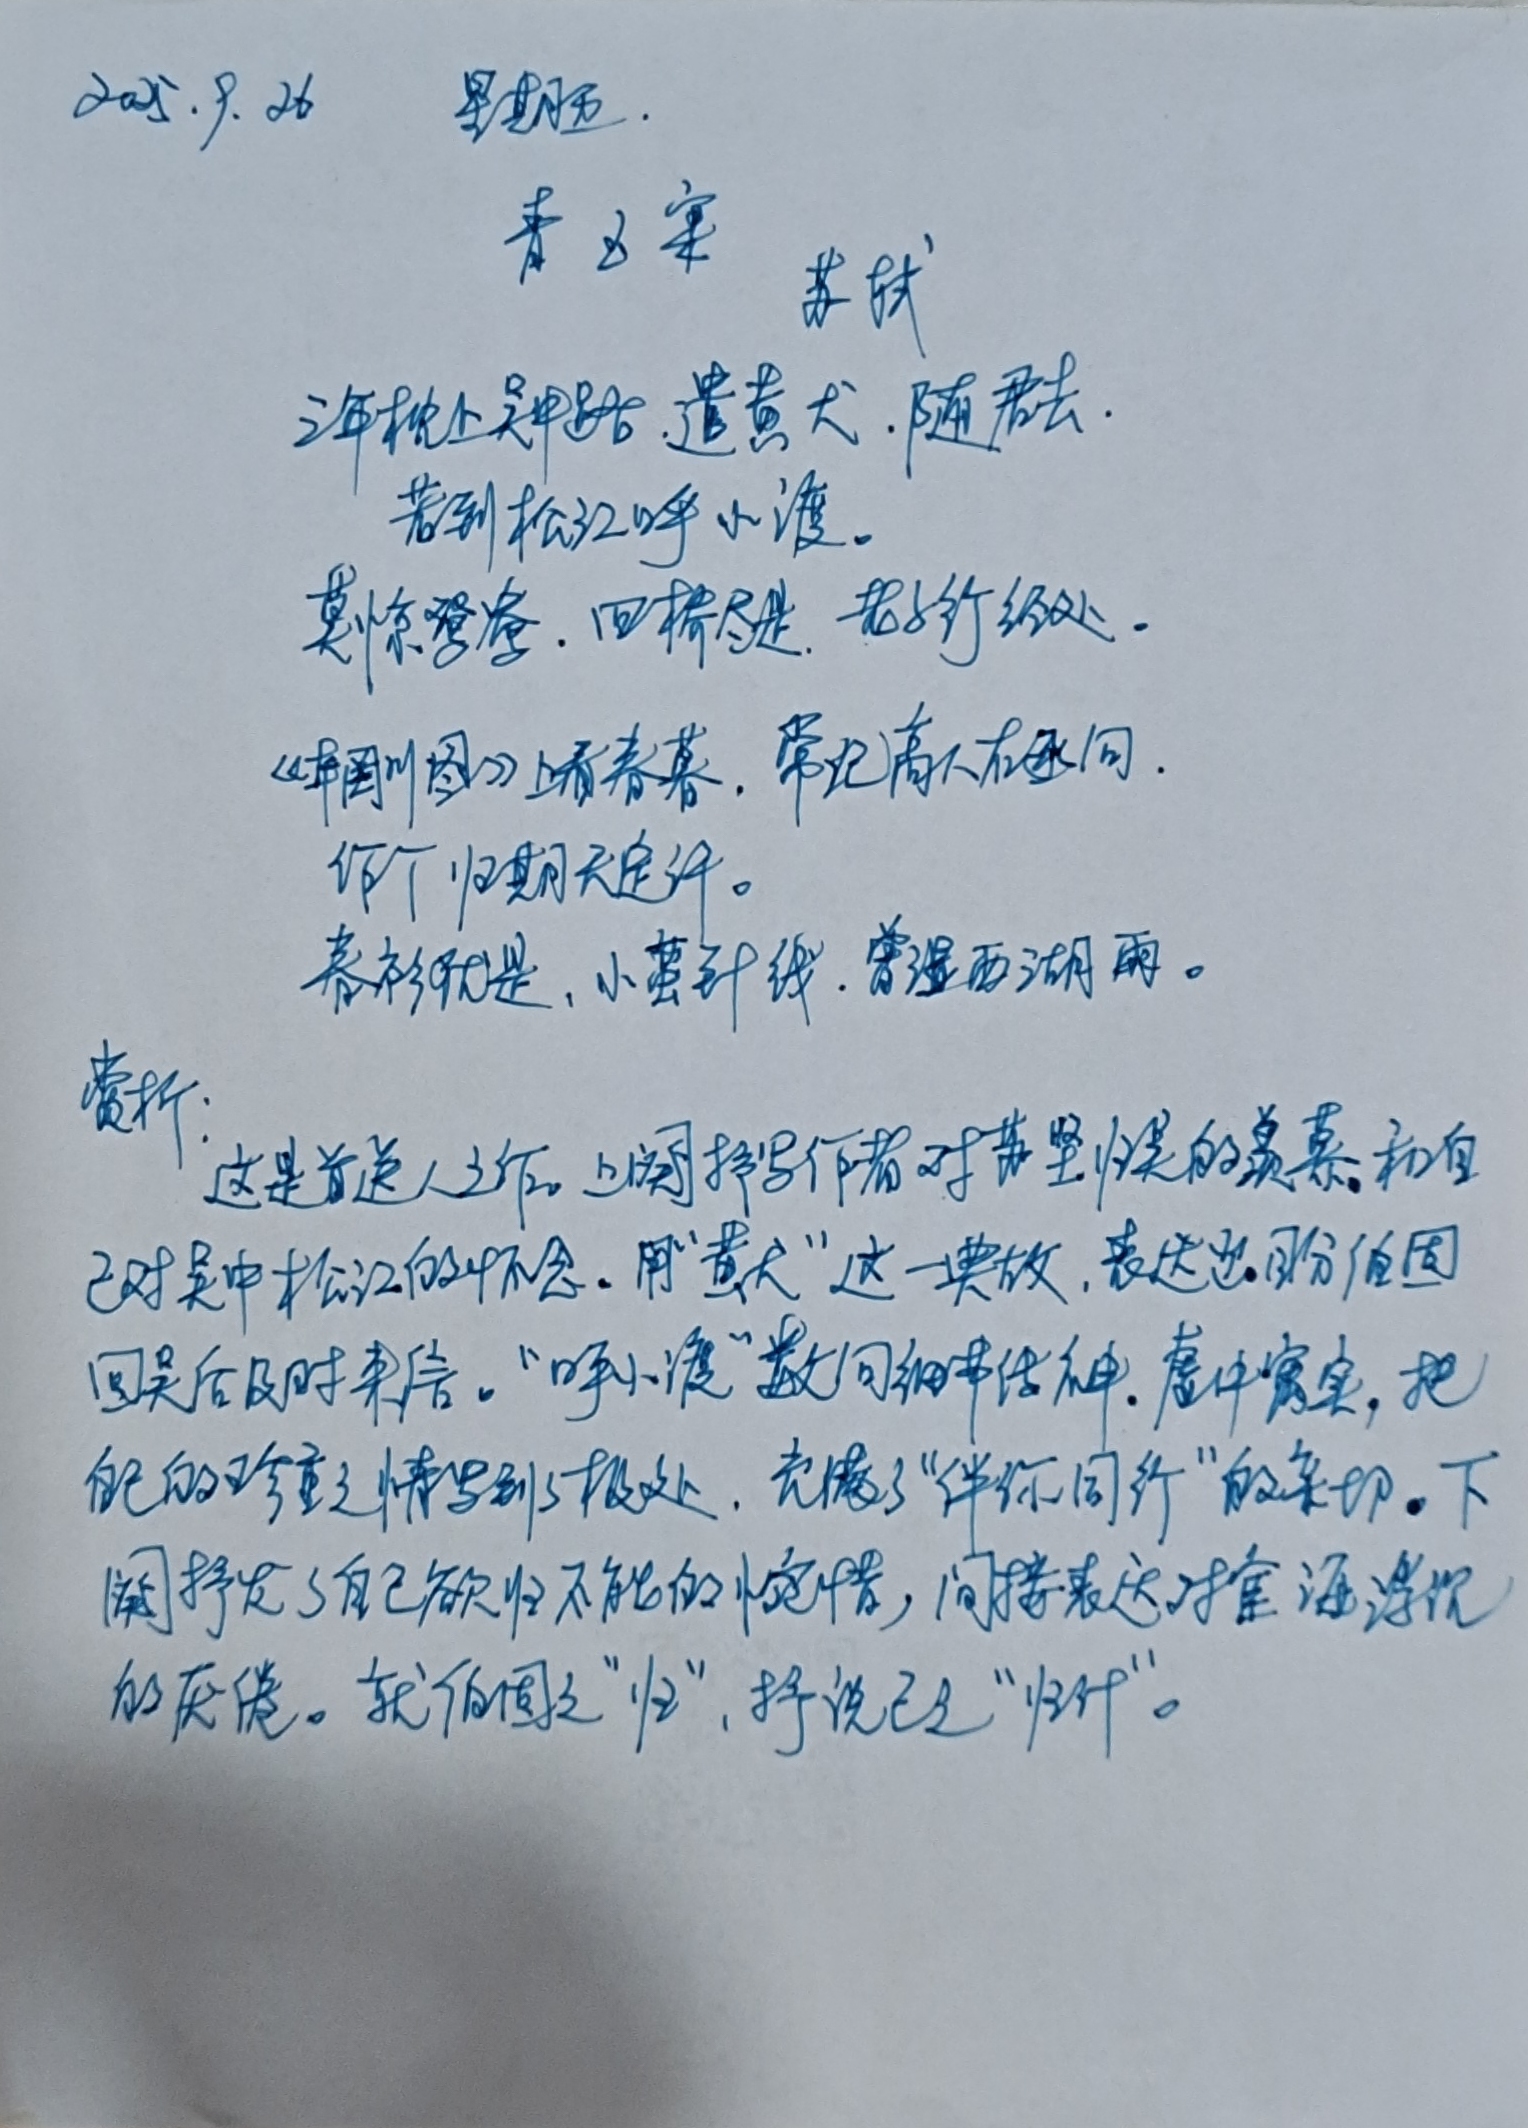 2025.9.26 星期五.
青玉案
苏轼
三年枕上吴中路.遣黄犬.随君去.
若到松江呼小渡。
莫惊鸳鹭.四桥尽是.老子行经处.
《辋川图》上看春暮.常记高人右丞句.
作个归期天定许。
春衫犹是,小蛮针线.曾湿西湖雨。
赏析:
这是首送人之作。上阕抒写作者对苏坚归吴的羡慕和自
己对吴中松江的怀念.用“黄犬”这一典故,表达出盼伯固
回吴后及时来信。“呼小渡”数句细节传神.虚中寓实,把
自己的珍重之情写到了极处,充满了“伴你同行”的亲切。下
阕抒发了自己欲归不能的惋惜,间接表达对宦海浮沉
的厌倦。就伯固之“归”,抒说己之“归计”。